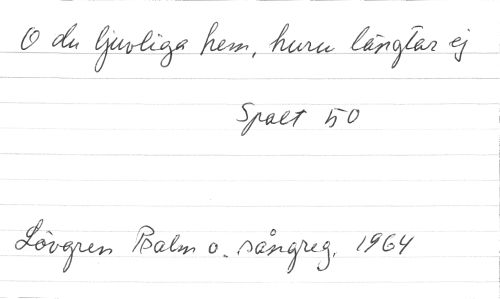 O du ljuvliga hem, huru längtar ej
Spalt 50
Lövgren Psalm o. sångreg. 1964